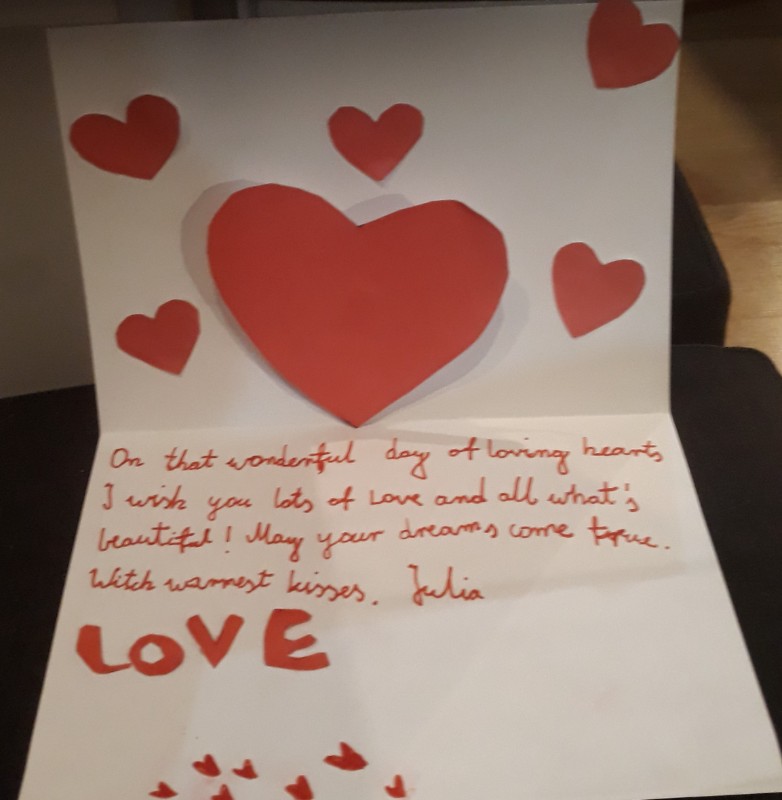 On that wonderful day of loving hearts
I wish you lots of Love and all what's
beautiful! May your dreams come true.
Witch warmest kisses. Julia
LOVE